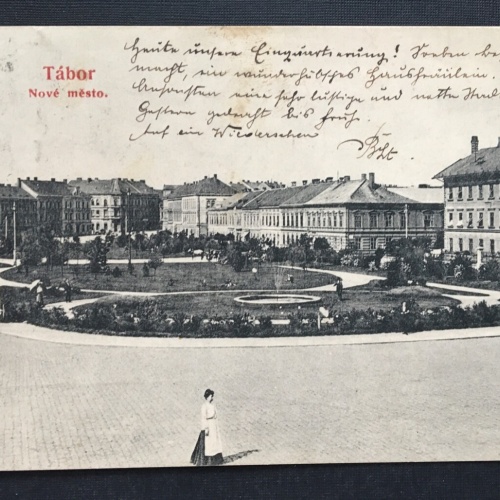 Tábor
Nové město.
Heute unsere Einquartierung! Soeben
macht, ein wunderhübsches Hausfräulein.
Ansonsten eine sehr lustige und nette Stadt
Gestern gedacht bis früh.
Auf ein Wiedersehen